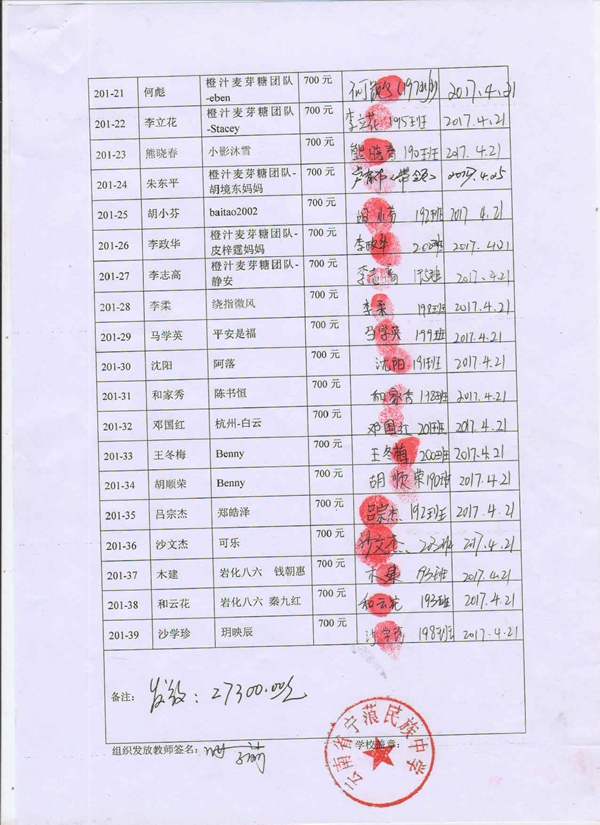 201-21 何彪 橙汁麦芽糖团队 700 元 何彪 (197班) 2017.4.21
-eben
201-22 李立花 橙汁麦芽糖团队 700 元 李立花 195班 2017.4.21
-Stacey
201-23 熊晓春 小影沐雪 700 元 熊晓春 190班 2017.4.21
201-24 朱东平 橙汁麦芽糖团队- 700 元
胡境东妈妈
201-25 胡小芬 baitao2002 700 元 胡小芬 192班 2017 4.21
201-26 李政华 橙汁麦芽糖团队- 700 元 李政华 200班 2017.4.21
皮梓霆妈妈
201-27 李志高 橙汁麦芽糖团队- 700 元 李志高 195班 2017.4.21
静安
201-28 李柔 绕指微风 700 元 李柔 198班 2017.4.21
201-29 马学英 平安是福 700 元 马学英 199班 2017.4.21
201-30 沈阳 阿落 700 元 沈阳 191班 2017.4.21
201-31 和家秀 陈书恒 700 元 和家秀 198班 2017.4.21
201-32 邓国红 杭州-白云 700 元 邓国红 201班 2017.4.21
201-33 王冬梅 Benny 700 元 王冬梅 200班 2017.4.21
201-34 胡顺荣 Benny 700 元 胡顺荣 190班 2017.4.21
201-35 吕宗杰 郑皓泽 700 元 吕宗杰 192班 2017.4.21
201-36 沙文杰 可乐 700 元 沙文杰 2017.4.21
201-37 木建 岩化八六 钱朝惠 700 元 木建 193班 2017.4.21
201-38 和云花 岩化八六 秦九红 700 元 和云花 193班 2017.4.21
201-39 沙学珍 玥映辰 700 元 沙学珍 198班 2017.4.21
备注: 发放:27300.00元
组织发放教师签名: 学校盖章:
云南省宁蒗民族中学